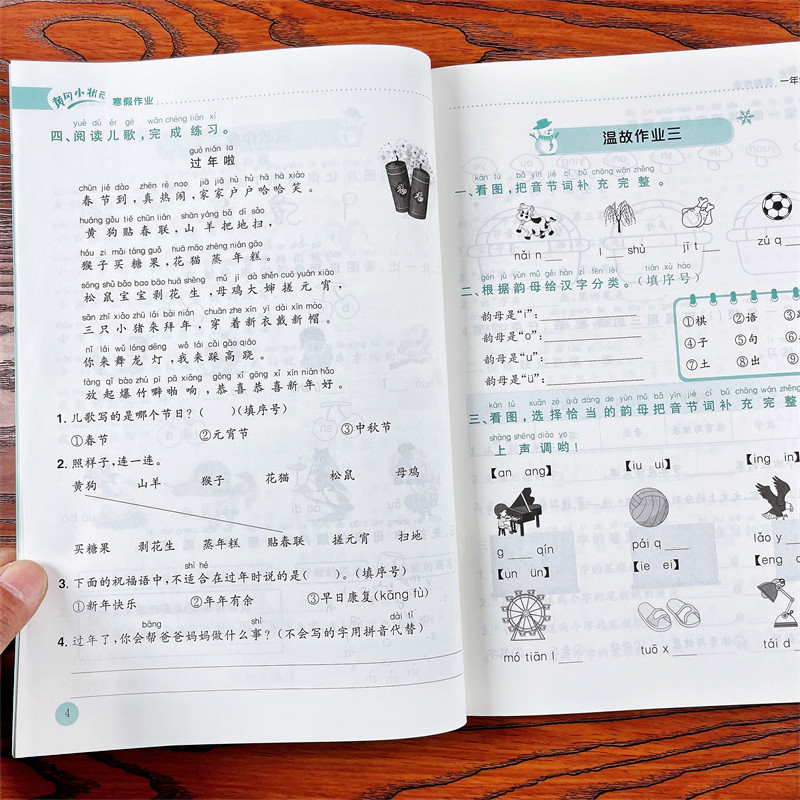 黄冈小状元 寒假作业
yuè dú ér gē wán chéng liàn xí
四、阅读儿歌，完成练习。
guò nián la
过年啦
chūn jié dào zhēn rè nao jiā jiā hù hù hā hā xiào
春节到，真热闹，家家户户哈哈笑。
huáng gǒu tiē chūn lián shān yáng bǎ dì sǎo
黄狗贴春联，山羊把地扫，
hóu zi mǎi táng guǒ huā māo zhēng nián gāo
猴子买糖果，花猫蒸年糕。
sōng shǔ bǎo bao bāo huā shēng mǔ jī dà shěn cuō yuán xiāo
松鼠宝宝剥花生，母鸡大婶搓元宵，
sān zhī xiǎo zhū lái bài nián chuān zhe xīn yī dài xīn mào
三只小猪来拜年，穿着新衣戴新帽。
nǐ lái wǔ lóng dēng wǒ lái cǎi gāo qiāo
你来舞龙灯，我来踩高跷。
fàng qǐ bào zhú pī pā xiǎng gōng xǐ gōng xǐ xīn nián hǎo
放起爆竹噼啪响，恭喜恭喜新年好。
1. 儿歌写的是哪个节日？（ ）（填序号）
①春节 ②元宵节 ③中秋节
2. 照样子，连一连。
黄狗 山羊 猴子 花猫 松鼠 母鸡
买糖果 剥花生 蒸年糕 贴春联 搓元宵 扫地
shì hé
3. 下面的祝福语中，不适合在过年时说的是（ ）。（填序号）
①新年快乐 ②年年有余 ③早日康复(kāng fù)
bāng shì dài tì
4. 过年了，你会帮爸爸妈妈做什么事？（不会写的字用拼音代替）
4
一年
温故作业三
kàn tú bǎ yīn jié cí bǔ chōng wán zhěng
一、看图，把音节词补充完整。
nǎi n l shù jī t zú q
gēn jù yùn mǔ gěi hàn zì fēn lèi tián xù hào
二、根据韵母给汉字分类。（填序号）
韵母是“i”：
韵母是“o”：
韵母是“u”：
韵母是“ü”：
①棋 ②语 ③
④子 ⑤句 ⑥
⑦土 ⑧出 ⑨
kàn tú xuǎn zé qià dàng de yùn mǔ bǎ yīn jié cí bǔ chōng wán zhěng
三、看图，选择恰当的韵母把音节词补充完整
shàng shēng diào yo
上声调哟！
【an ang】 【iu ui】 【ing in】
g qín pái q lǎo y
【un ün】 【ie ei】 【eng
mó tiān l tuō x tái d